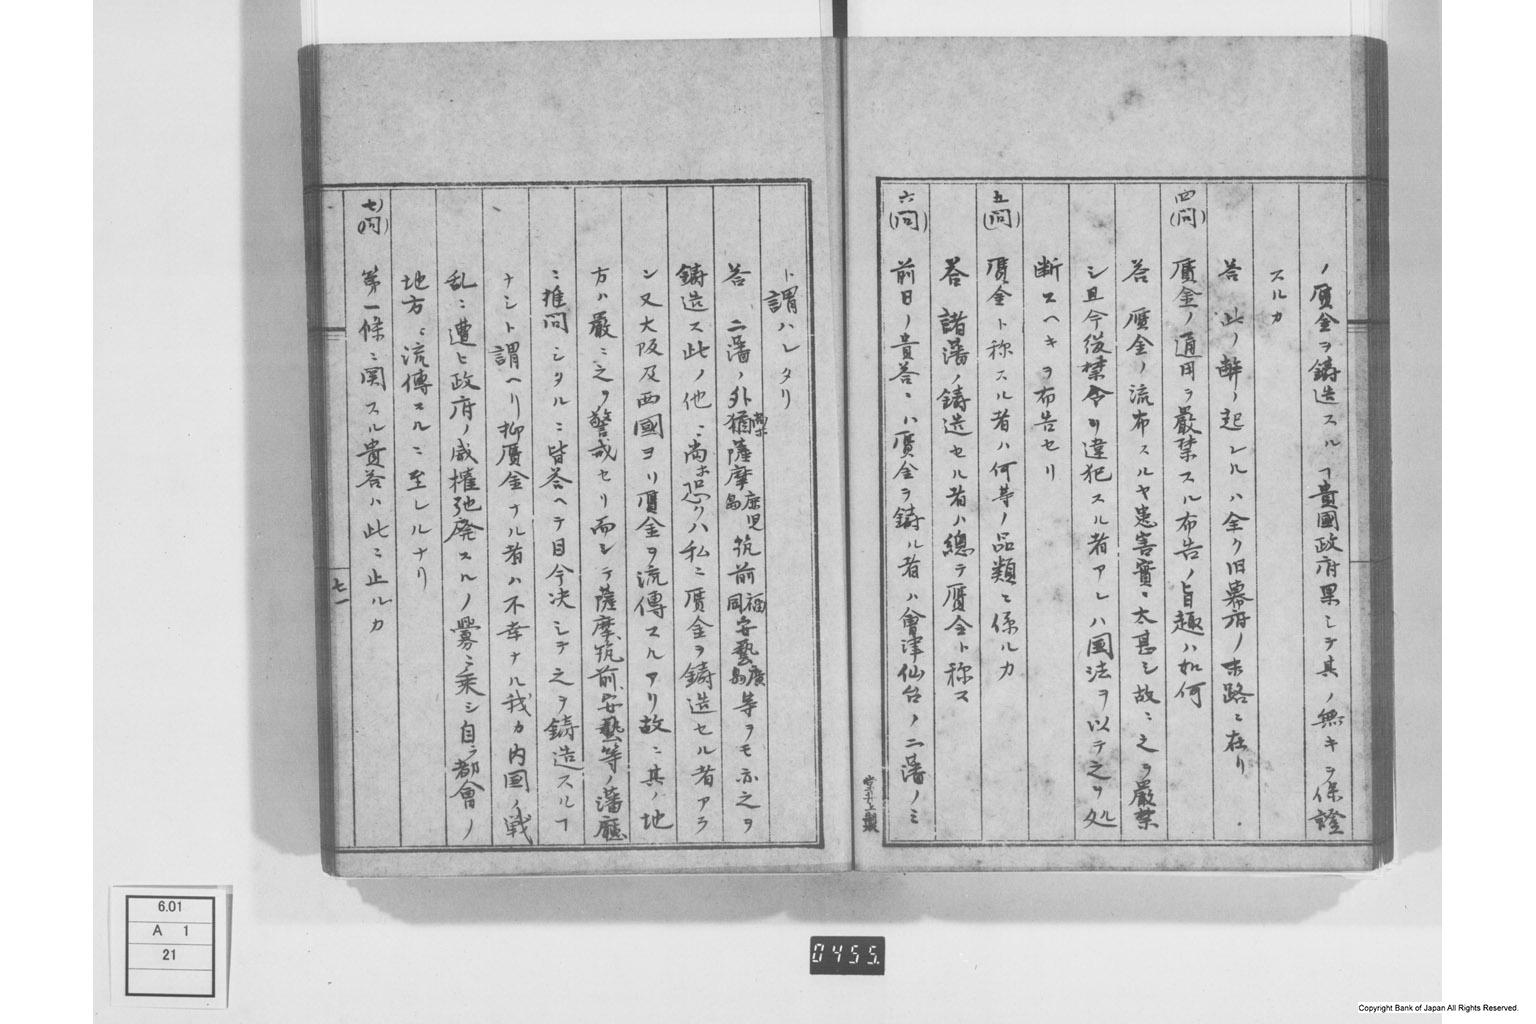 ノ贋金ヲ鋳造スルヿ貴國政府果シテ其ノ無キヲ保證
スルカ
答 此ノ弊ノ起レルハ全ク旧幕府ノ末路ニ在リ
四(問) 贋金ノ通用ヲ嚴禁スル布告ノ旨趣ハ如何
答 贋金ノ流布スルヤ患害實ニ太甚シ故ニ之ヲ嚴禁
シ且今後禁令ヲ違犯スル者アレハ国法ヲ以テ之ヲ処
断スヘキヲ布告セリ
五(問) 贋金ト称スル者ハ何等ノ品類ニ係ルカ
答 諸藩ノ鋳造セル者ハ總テ贋金ト称ス
六(問) 前日ノ貴答ニハ贋金ヲ鋳ル者ハ會津仙台ノ二藩ノミ
ト謂ハレタリ
答 二藩ノ外猶ホ薩摩鹿児島筑前福岡安藝廣島等ヲモ亦之ヲ
鋳造ス此ノ他ニ尚ホ恐クハ私ニ贋金ヲ鋳造セル者アラ
ン又大阪及西國ヨリ贋金ヲ流傳スルアリ故ニ其ノ地
方ハ嚴ニ之ヲ警戒セリ而シテ薩摩筑前安藝等ノ藩廳
ニ推問シタルニ皆答ヘテ目今决シテ之ヲ鋳造スルヿ
ナシト謂ヘリ抑贋金ナル者ハ不幸ナル我カ内国ノ戦
乱ニ遭ヒ政府ノ威權弛廃スルノ釁ニ乘シ自ラ都會ノ
地方ニ流傳スルニ至レルナリ
七(問) 第一條ニ関スル貴答ハ此ニ止ルカ
七一
6.01
A 1
21
0455.
Copyright Bank of Japan All Rights Reserved.